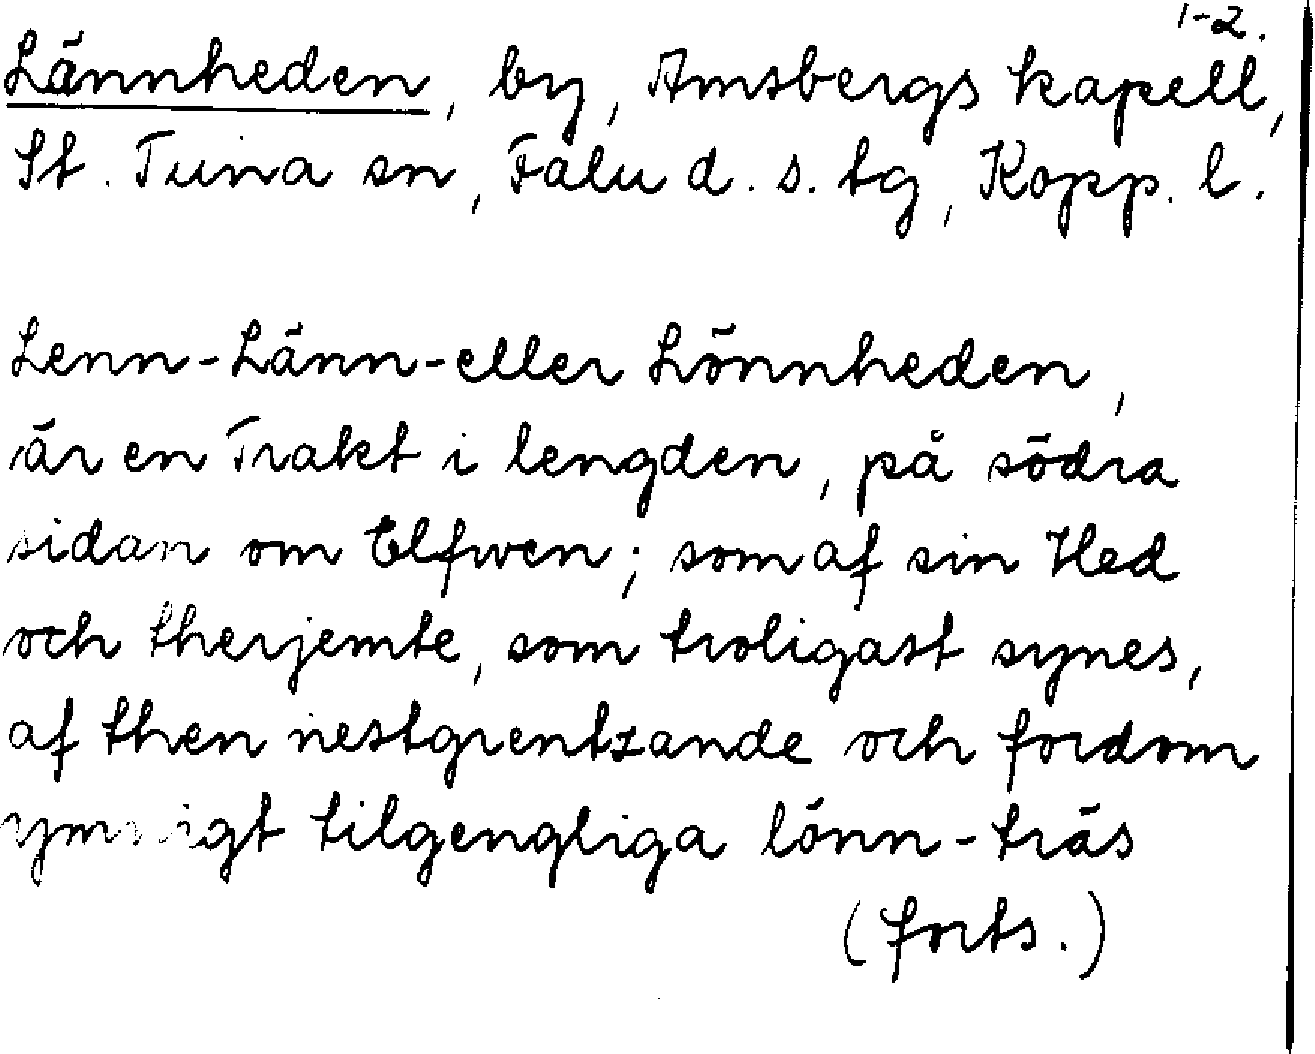 1-2.
Lännheden, by, Amsbergs kapell,
St. Tuna sn, Falu d. s. tg, Kopp. l.
Lenn-Länn-eller Lönnheden,
är en Trakt i lengden, på södra
sidan om Elfwen; som af sin Hed
och therjemte, som troligast synes,
af then nestgrentzande och fordom
ymnigt tilgengliga lönn-träs
(forts.)